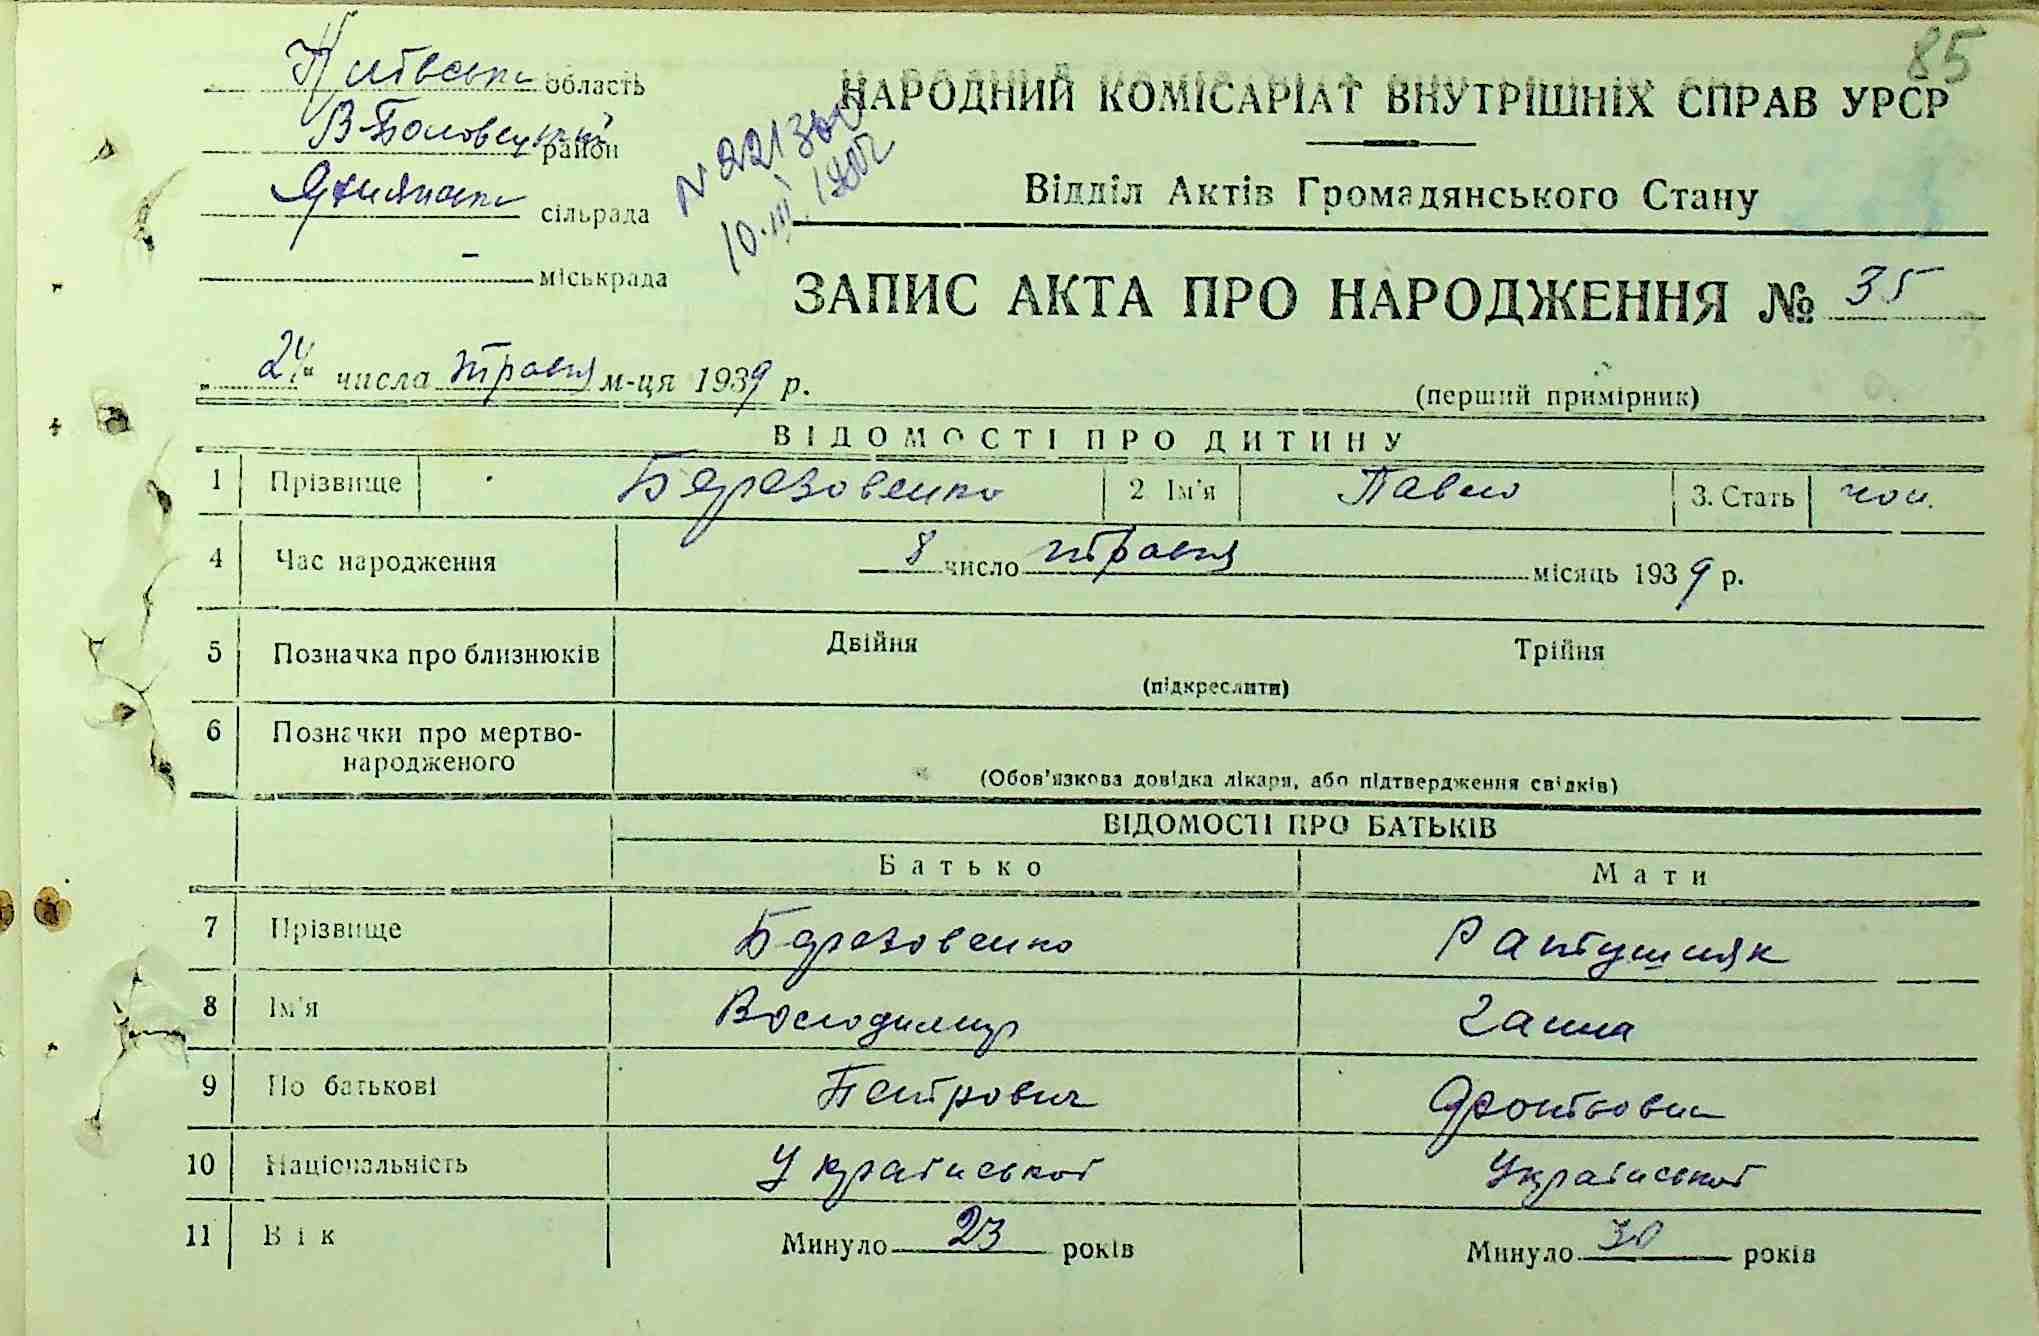 85
Київська область
НАРОДНИЙ КОМІСАРІАТ ВНУТРІШНІХ СПРАВ УРСР
В-Половецький район
Відділ Актів Громадянського Стану
сільрада
10.III.
- міськрада
ЗАПИС АКТА ПРО НАРОДЖЕННЯ № 35
„24“ числа травня м-ця 1939 р.
(перший примірник)
ВІДОМОСТІ ПРО ДИТИНУ
1 Прізвище Березовенко 2 Ім'я Павло 3. Стать чол.
4 Час народження 8 число травня місяць 1939 р.
5 Позначка про близнюків Двійня Трійня
(підкреслити)
6 Позначки про мертво-
народженого
(Обов'язкова довідка лікаря, або підтвердження свідків)
ВІДОМОСТІ ПРО БАТЬКІВ
Батько Мати
7 Прізвище Березовенко Ратушняк
8 Ім'я Володимир Ганна
9 По батькові Петрович
10 Національність Української Української
11 Вік Минуло 23 років Минуло 30 років